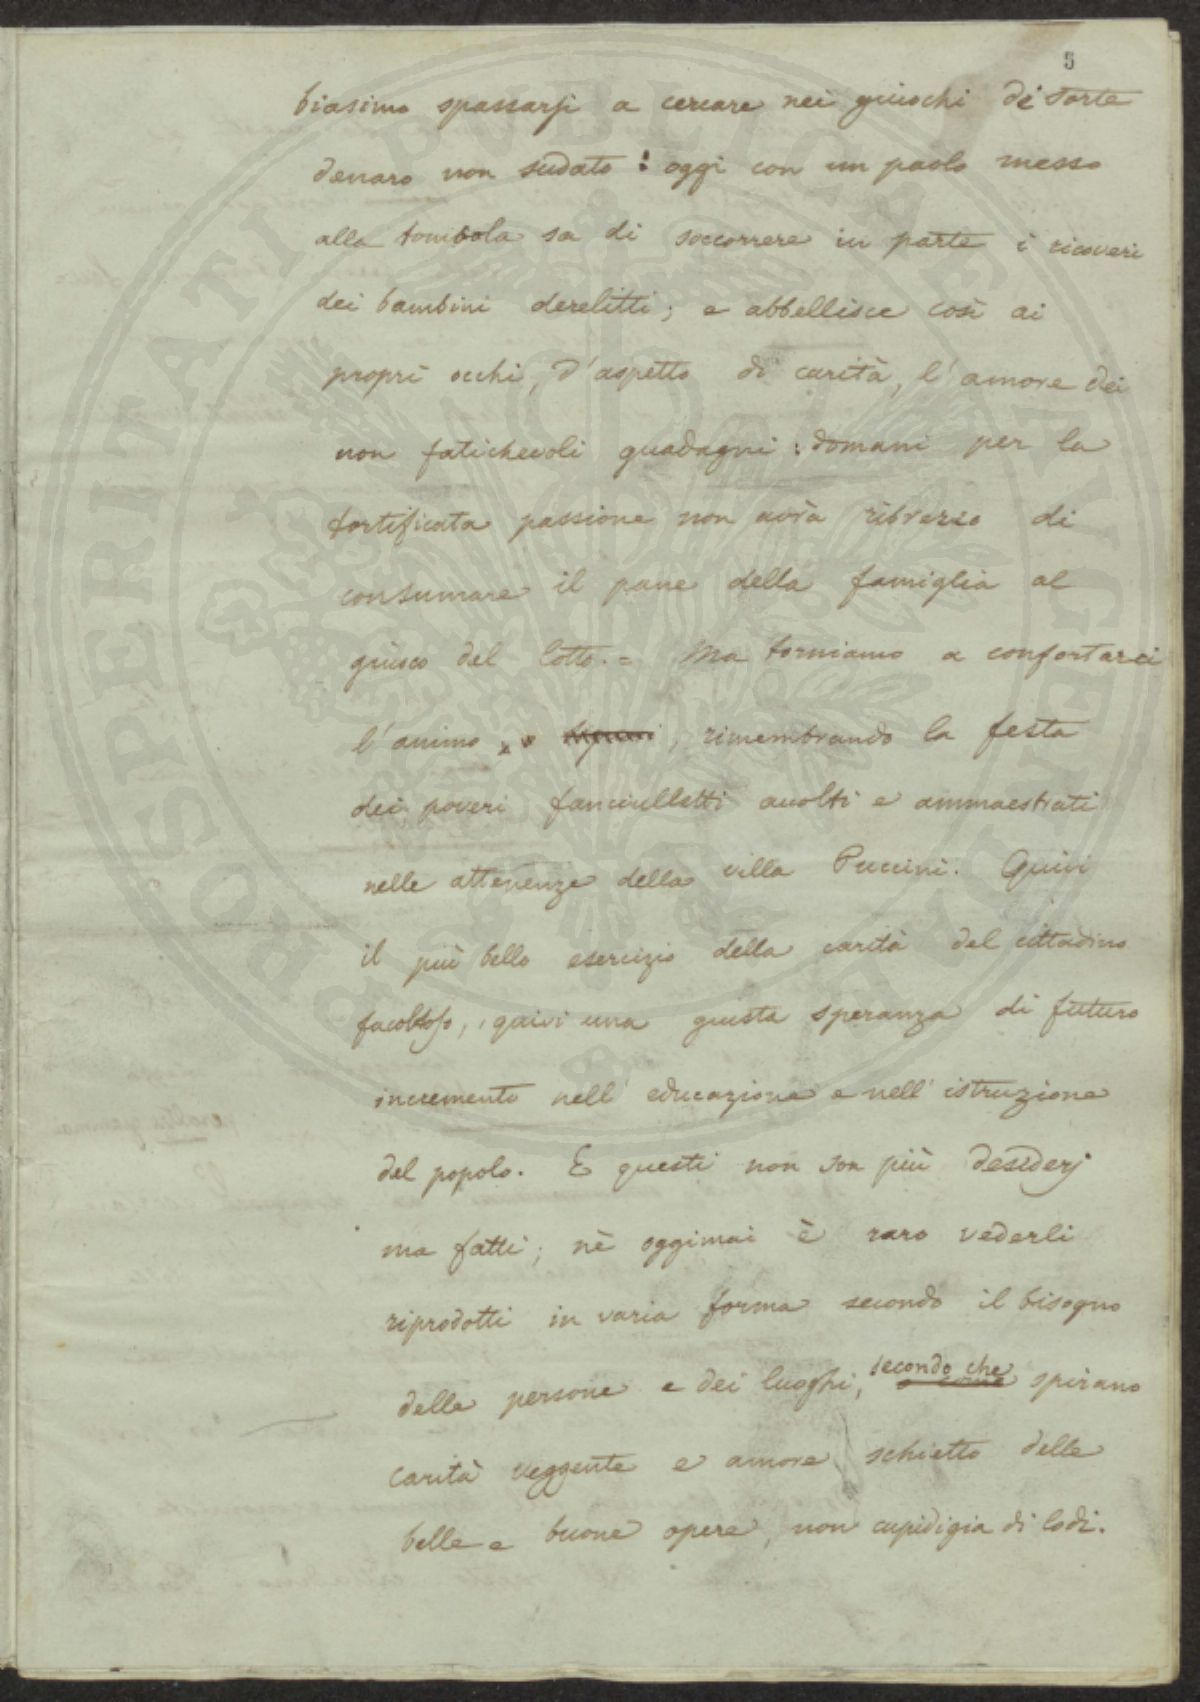 5
biasimo spassarsi a cercare nei giuochi di sorte
denaro non sudato : oggi con un paolo messo
alla tombola sa di soccorrere in parte i ricoveri
dei bambini derelitti ; e abbellisce così ai
proprî occhi, d'aspetto di carità, l'amore dei
non fatichevoli guadagni : domani per la
fortificata passione non avrà ribrezzo di
consumare il pane della famiglia al
giuoco del lotto. = Ma torniamo a confortarci
l'animo , rimembrando la festa
dei poveri fanciulletti accolti e ammaestrati
nelle attenenze della villa Puccini. Quivi
il più bello esercizio della carità del cittadino
facoltoso, quivi una giusta speranza di futuro
incremento nell' educazione e nell' istruzione
del popolo. E questi non son più desiderj
ma fatti ; nè oggimai è raro vederli
riprodotti in varia forma secondo il bisogno
delle persone e dei luoghi, secondo che o come spirano
carità veggente e amore schietto delle
belle e buone opere, non cupidigia di lodi.
PROSPERITATI PUBLICAE AUGENDAE